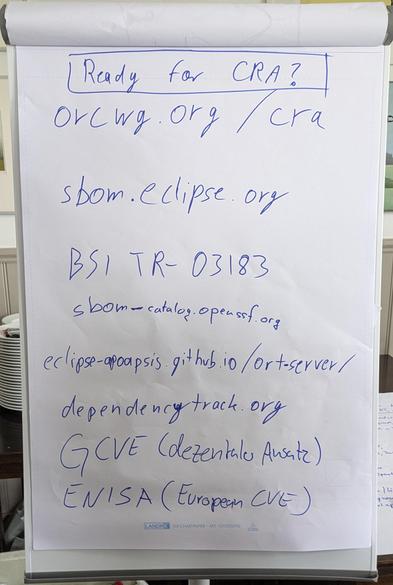 Ready for CRA?
orcwg.org/cra
sbom.eclipse.org
BSI TR-03183
sbom-catalog.openssf.org
eclipse-apoapsis.github.io/ort-server/
dependencytrack.org
GCVE (dezentraler Ansatz)
ENISA (European CVE)
LANDRÉ